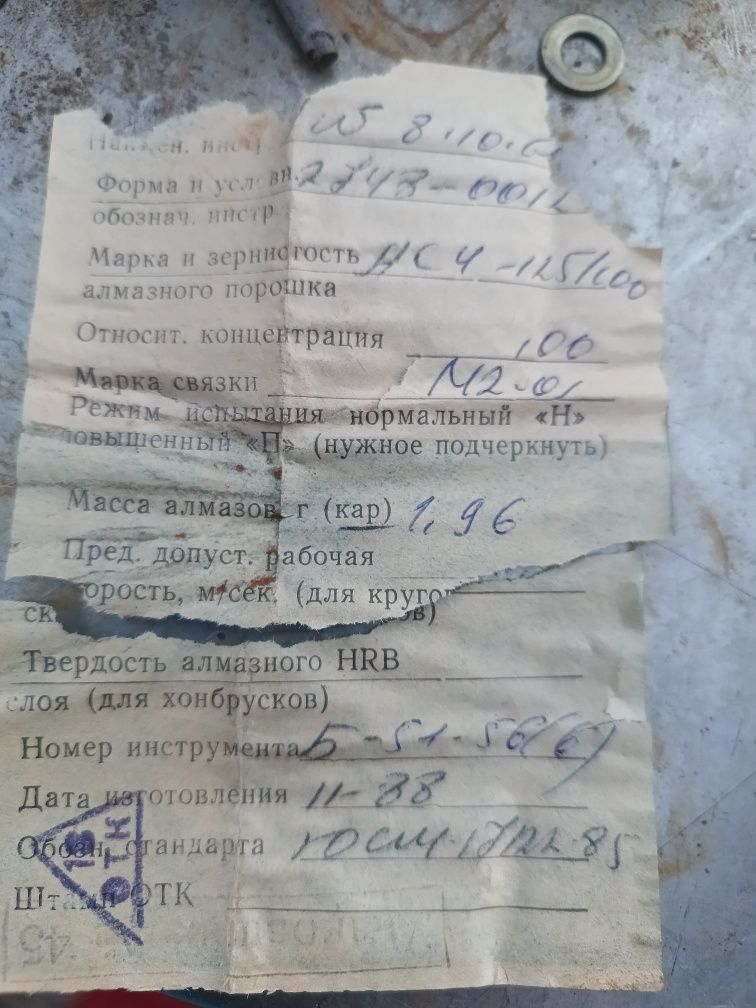 8.10.
Наимен. инст
Форма и усл. 2743-001
обознач. инстр.
Марка и зернистость АС4-125/100
алмазного порошка
Относит. концентрация 100
Марка связки М2-01
Режим испытания нормальный «Н»
повышенный «П» (нужное подчеркнуть)
Масса алмазов, г (кар) 1,96
Пред. допуст. рабочая
скорость, м/сек. (для кругов
Твердость алмазного HRB
слоя (для хонбрусков)
Номер инструмента Б-51-56(6)
Дата изготовления 11-88
Обозн. стандарта ГОСТ 17122-85
Штамп ОТК
18
ОТК
45